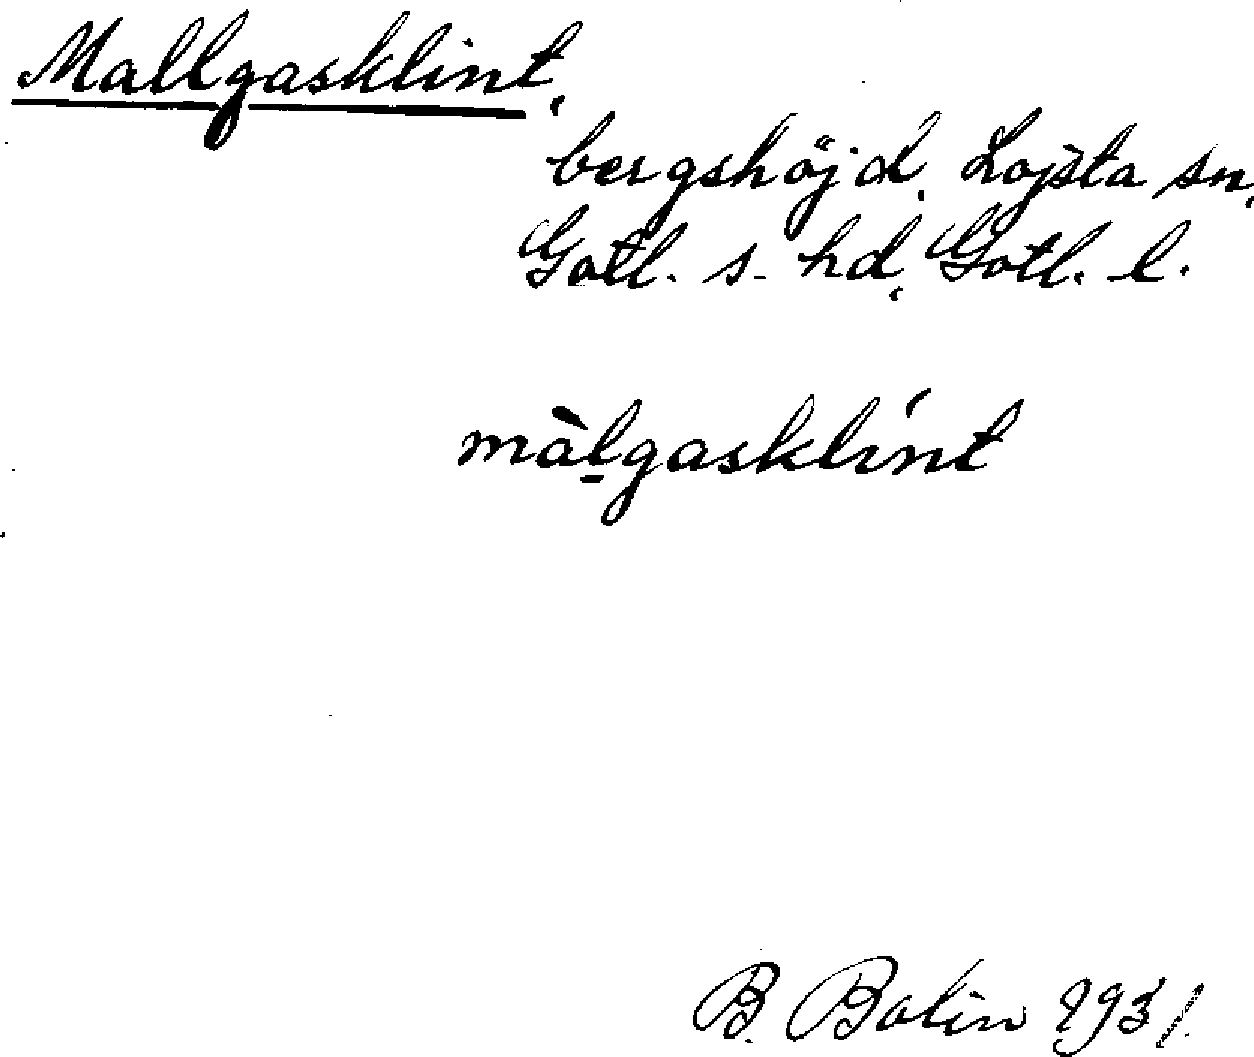 Mallgasklint,
bergshöjd, Lojsta sn,
Gotl. s. hd, Gotl. l.
màl̠gasklínt
B. Bolin 1931.